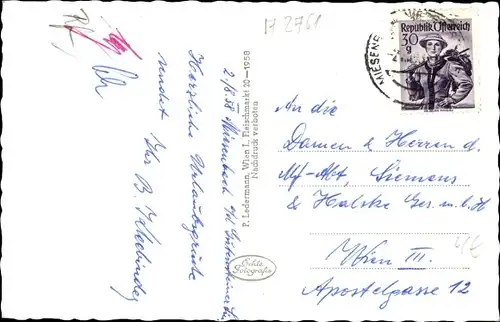 A 2761
2/8.58 Miesenbach
Herzliche Urlaubsgrüsse
sendet Ihr B.
P. Ledermann, Wien I, Fleischmarkt 20—1958
Nachdruck verboten
Echte
Fotografie
Republik Österreich
30
g
MIESENB
An die
Damen & Herren d.
Abt. Siemens
& Halske Ges. m. b. H
Wien III.
Apostelgasse 12
4€